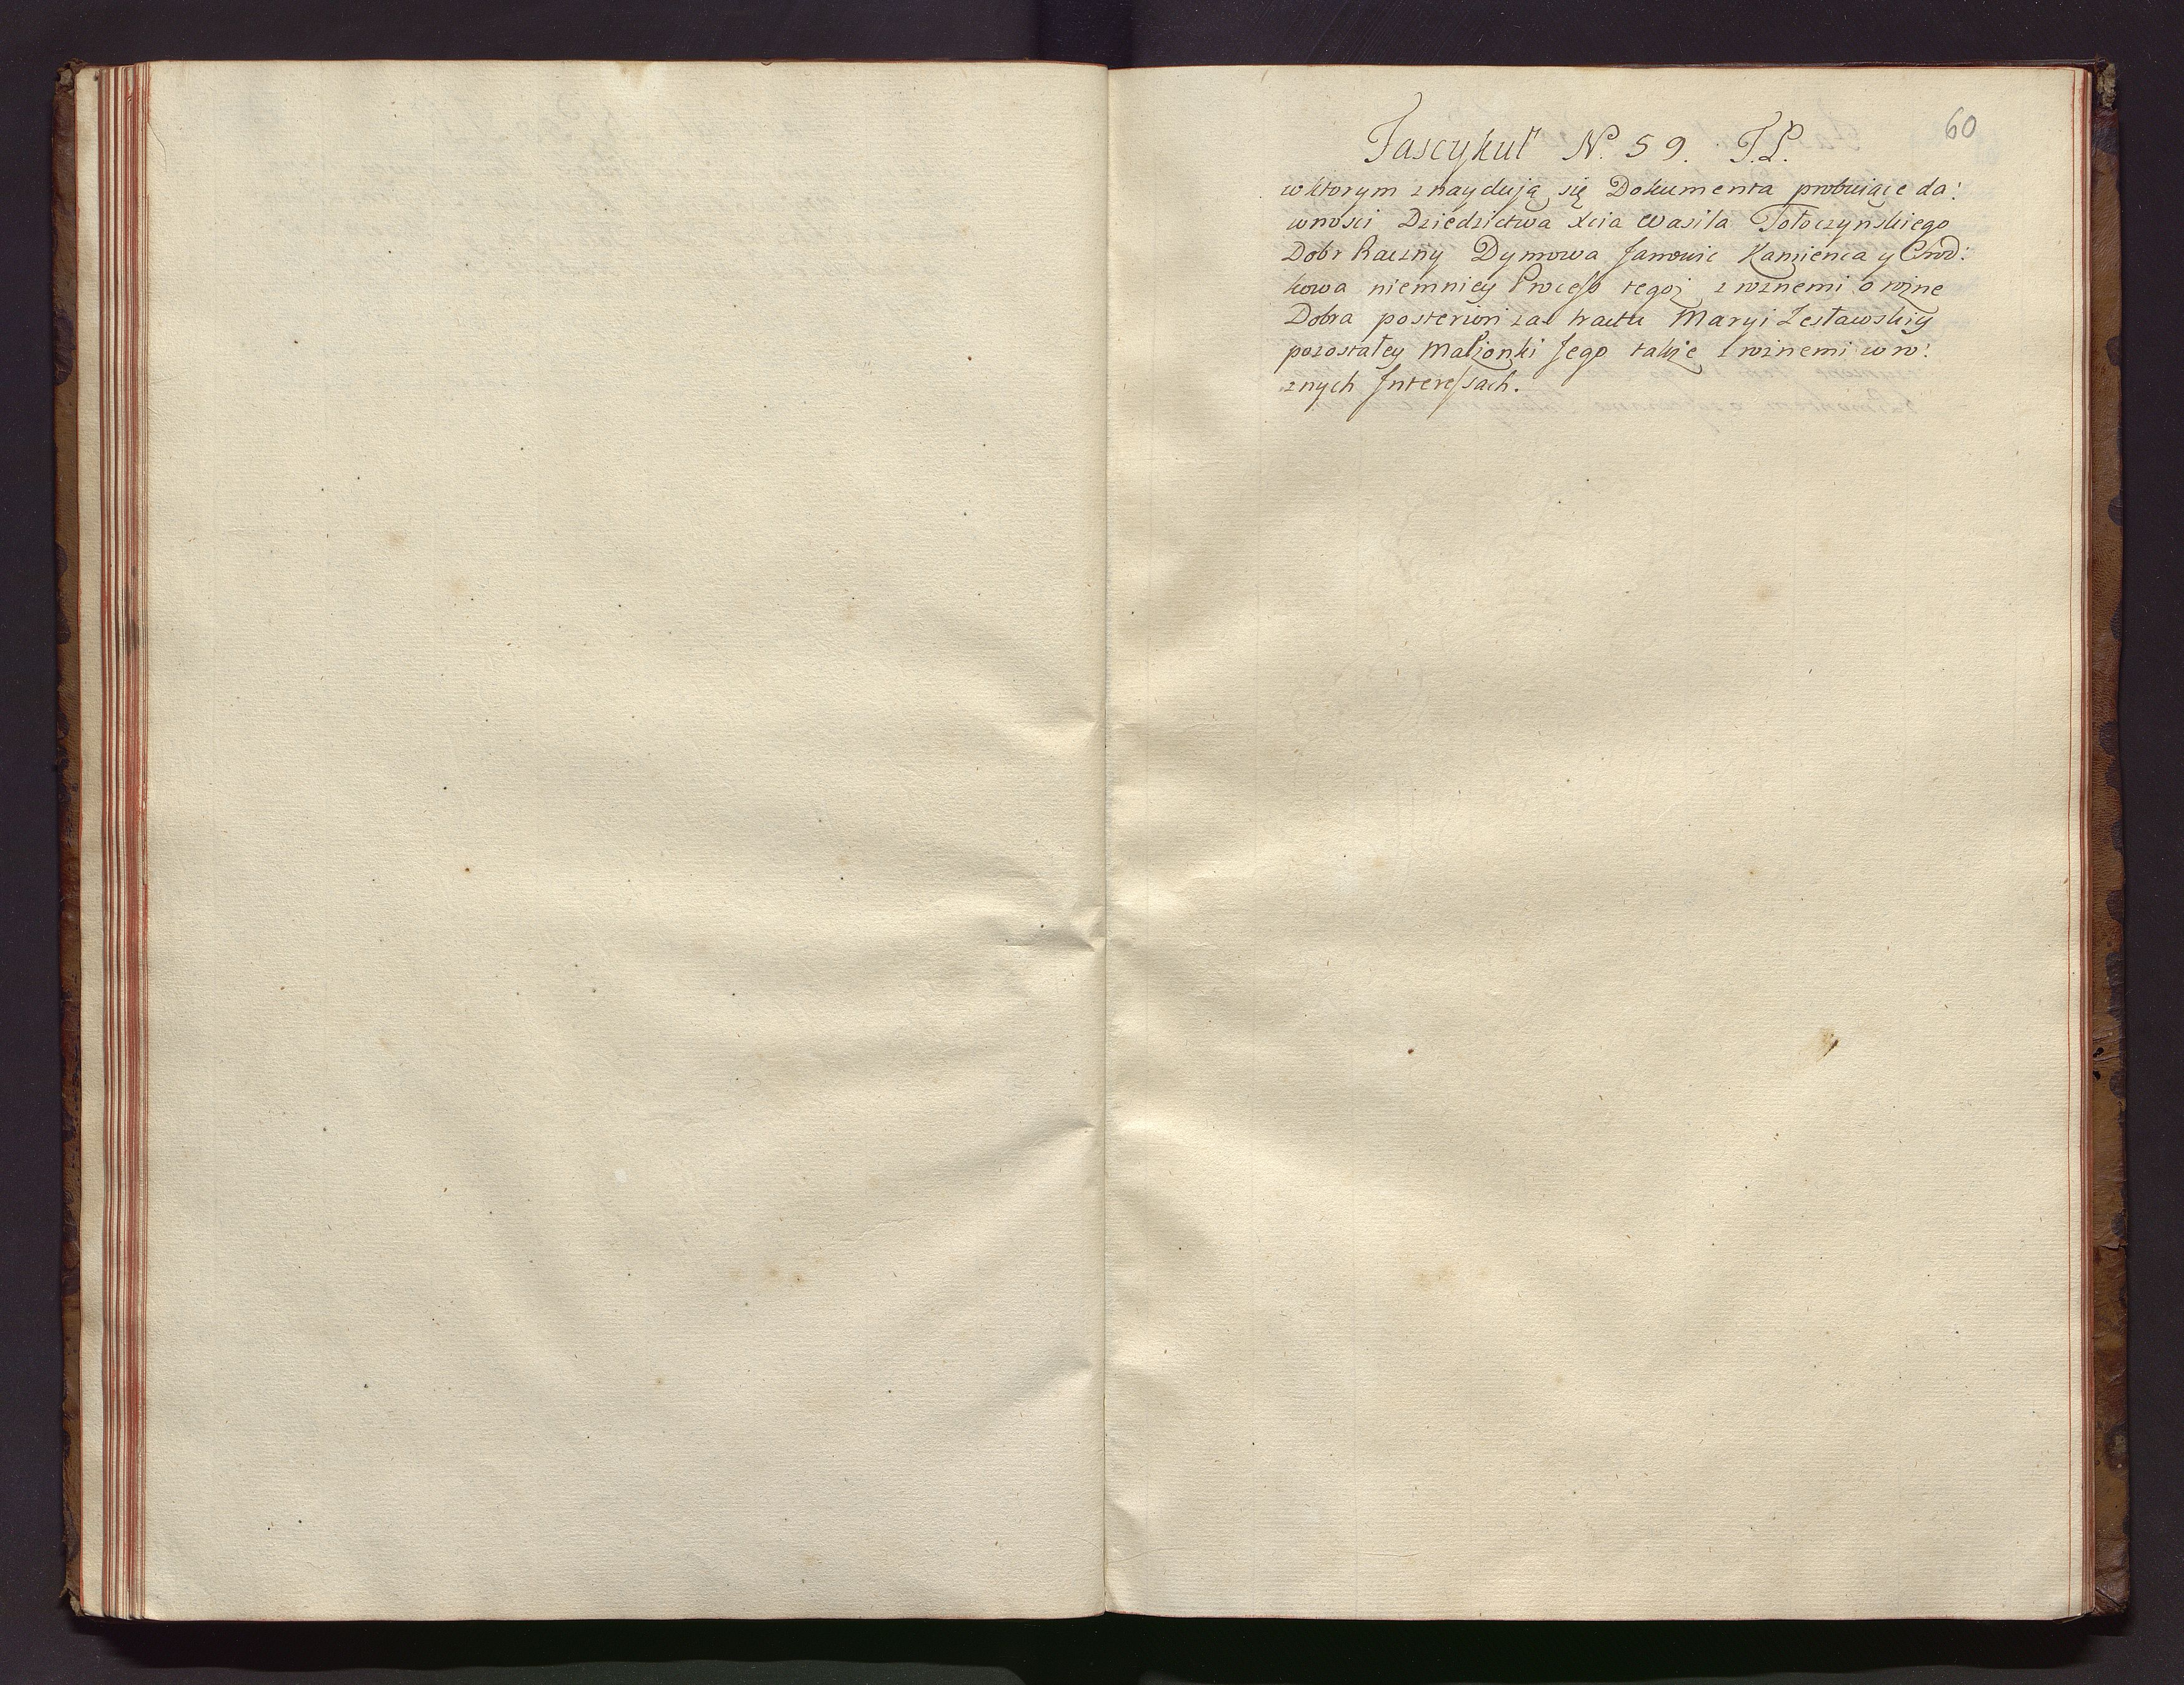 60
Fascykuł N. 59. T.L.
w ktorym znayduią się Dokumenta probuiące da:
wnosci Dziedzictwa Xcia Wasila Tołoczynskiego
Dobr Raczny Dymowa Janowic Kamienca y Chod:
kowa niemniey Process tegoż z roznemi o rożne
Dobra posteriori zas tractu Maryi Zesławskiy
pozostałey Małżonki Jego także z roznemi w ro:
znych Interessach.